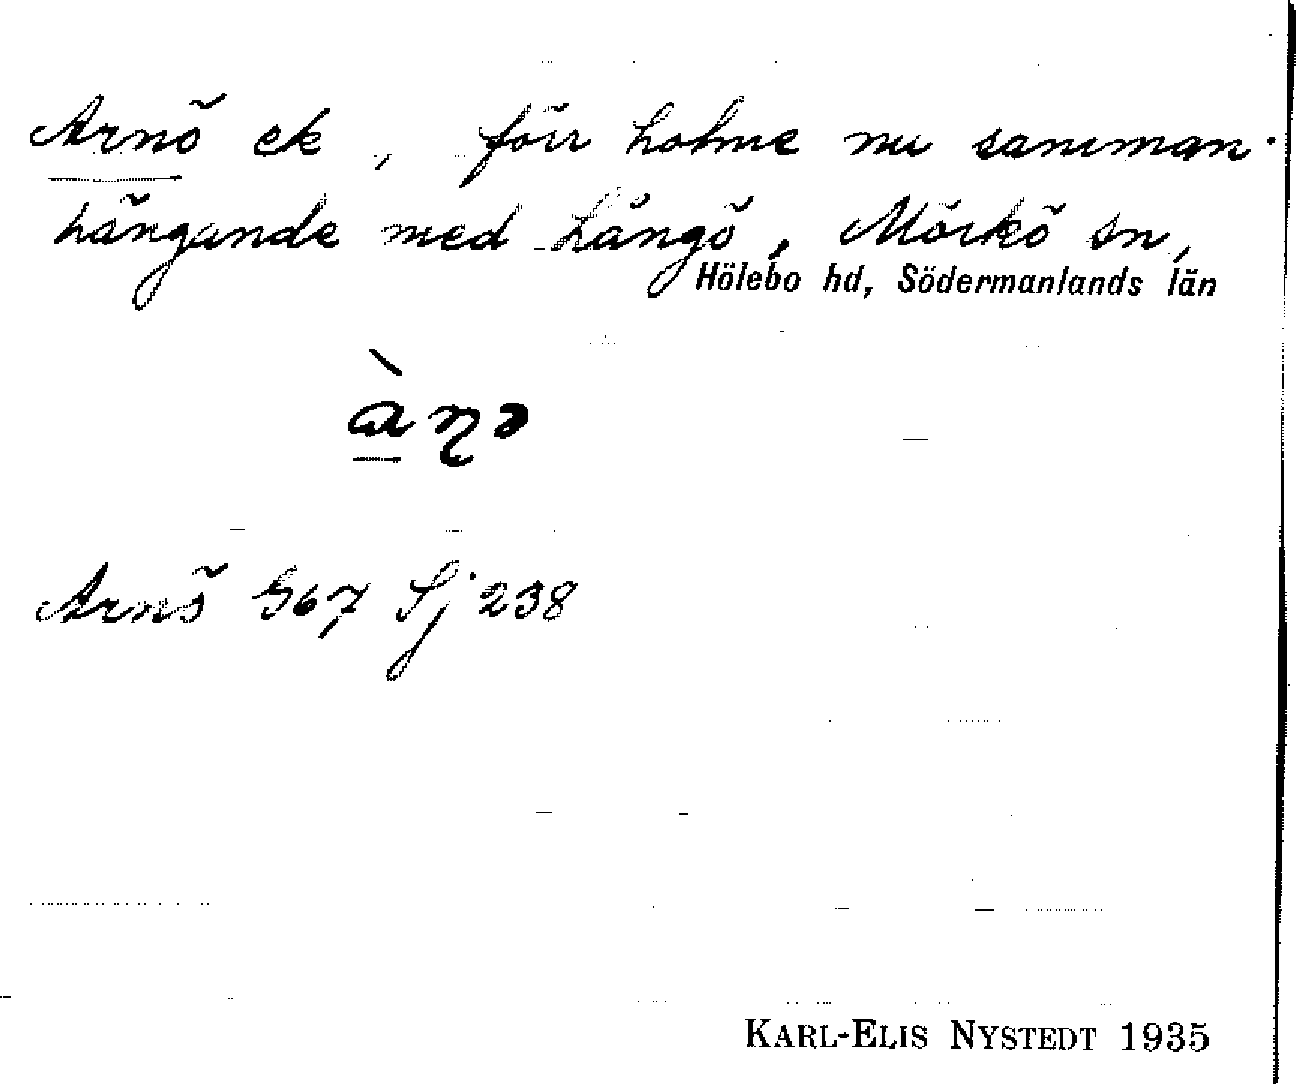 Arnö ek, förr holme nu samman-
hängande med Långö, Mörkö sn,
Hölebo hd, Södermanlands län
Arnö G67 Sj 238
KARL-ELIS NYSTEDT 1935